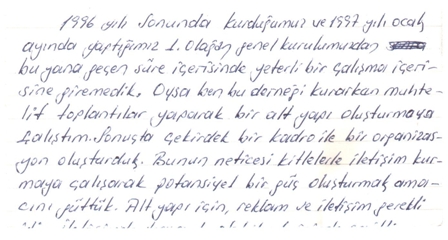 1996 yılı sonunda kurduğumuz ve 1997 yılı ocak
ayında yaptığımız 1. Olağan genel kurulumuzdan
bu yana geçen süre içerisinde yeterli bir çalışma içeri-
sine giremedik. Oysa ben bu derneği kurarken muhte-
lif toplantılar yaparak bir alt yapı oluşturmaya
çalıştım. Sonuçta çekirdek bir kadro ile bir organizas-
yon oluşturduk. Bunun neticesi kitlelerle iletişim kur-
maya çalışarak potansiyel bir güç oluşturmak ama-
cını güttük. Alt yapı için, reklam ve iletişim gerekli